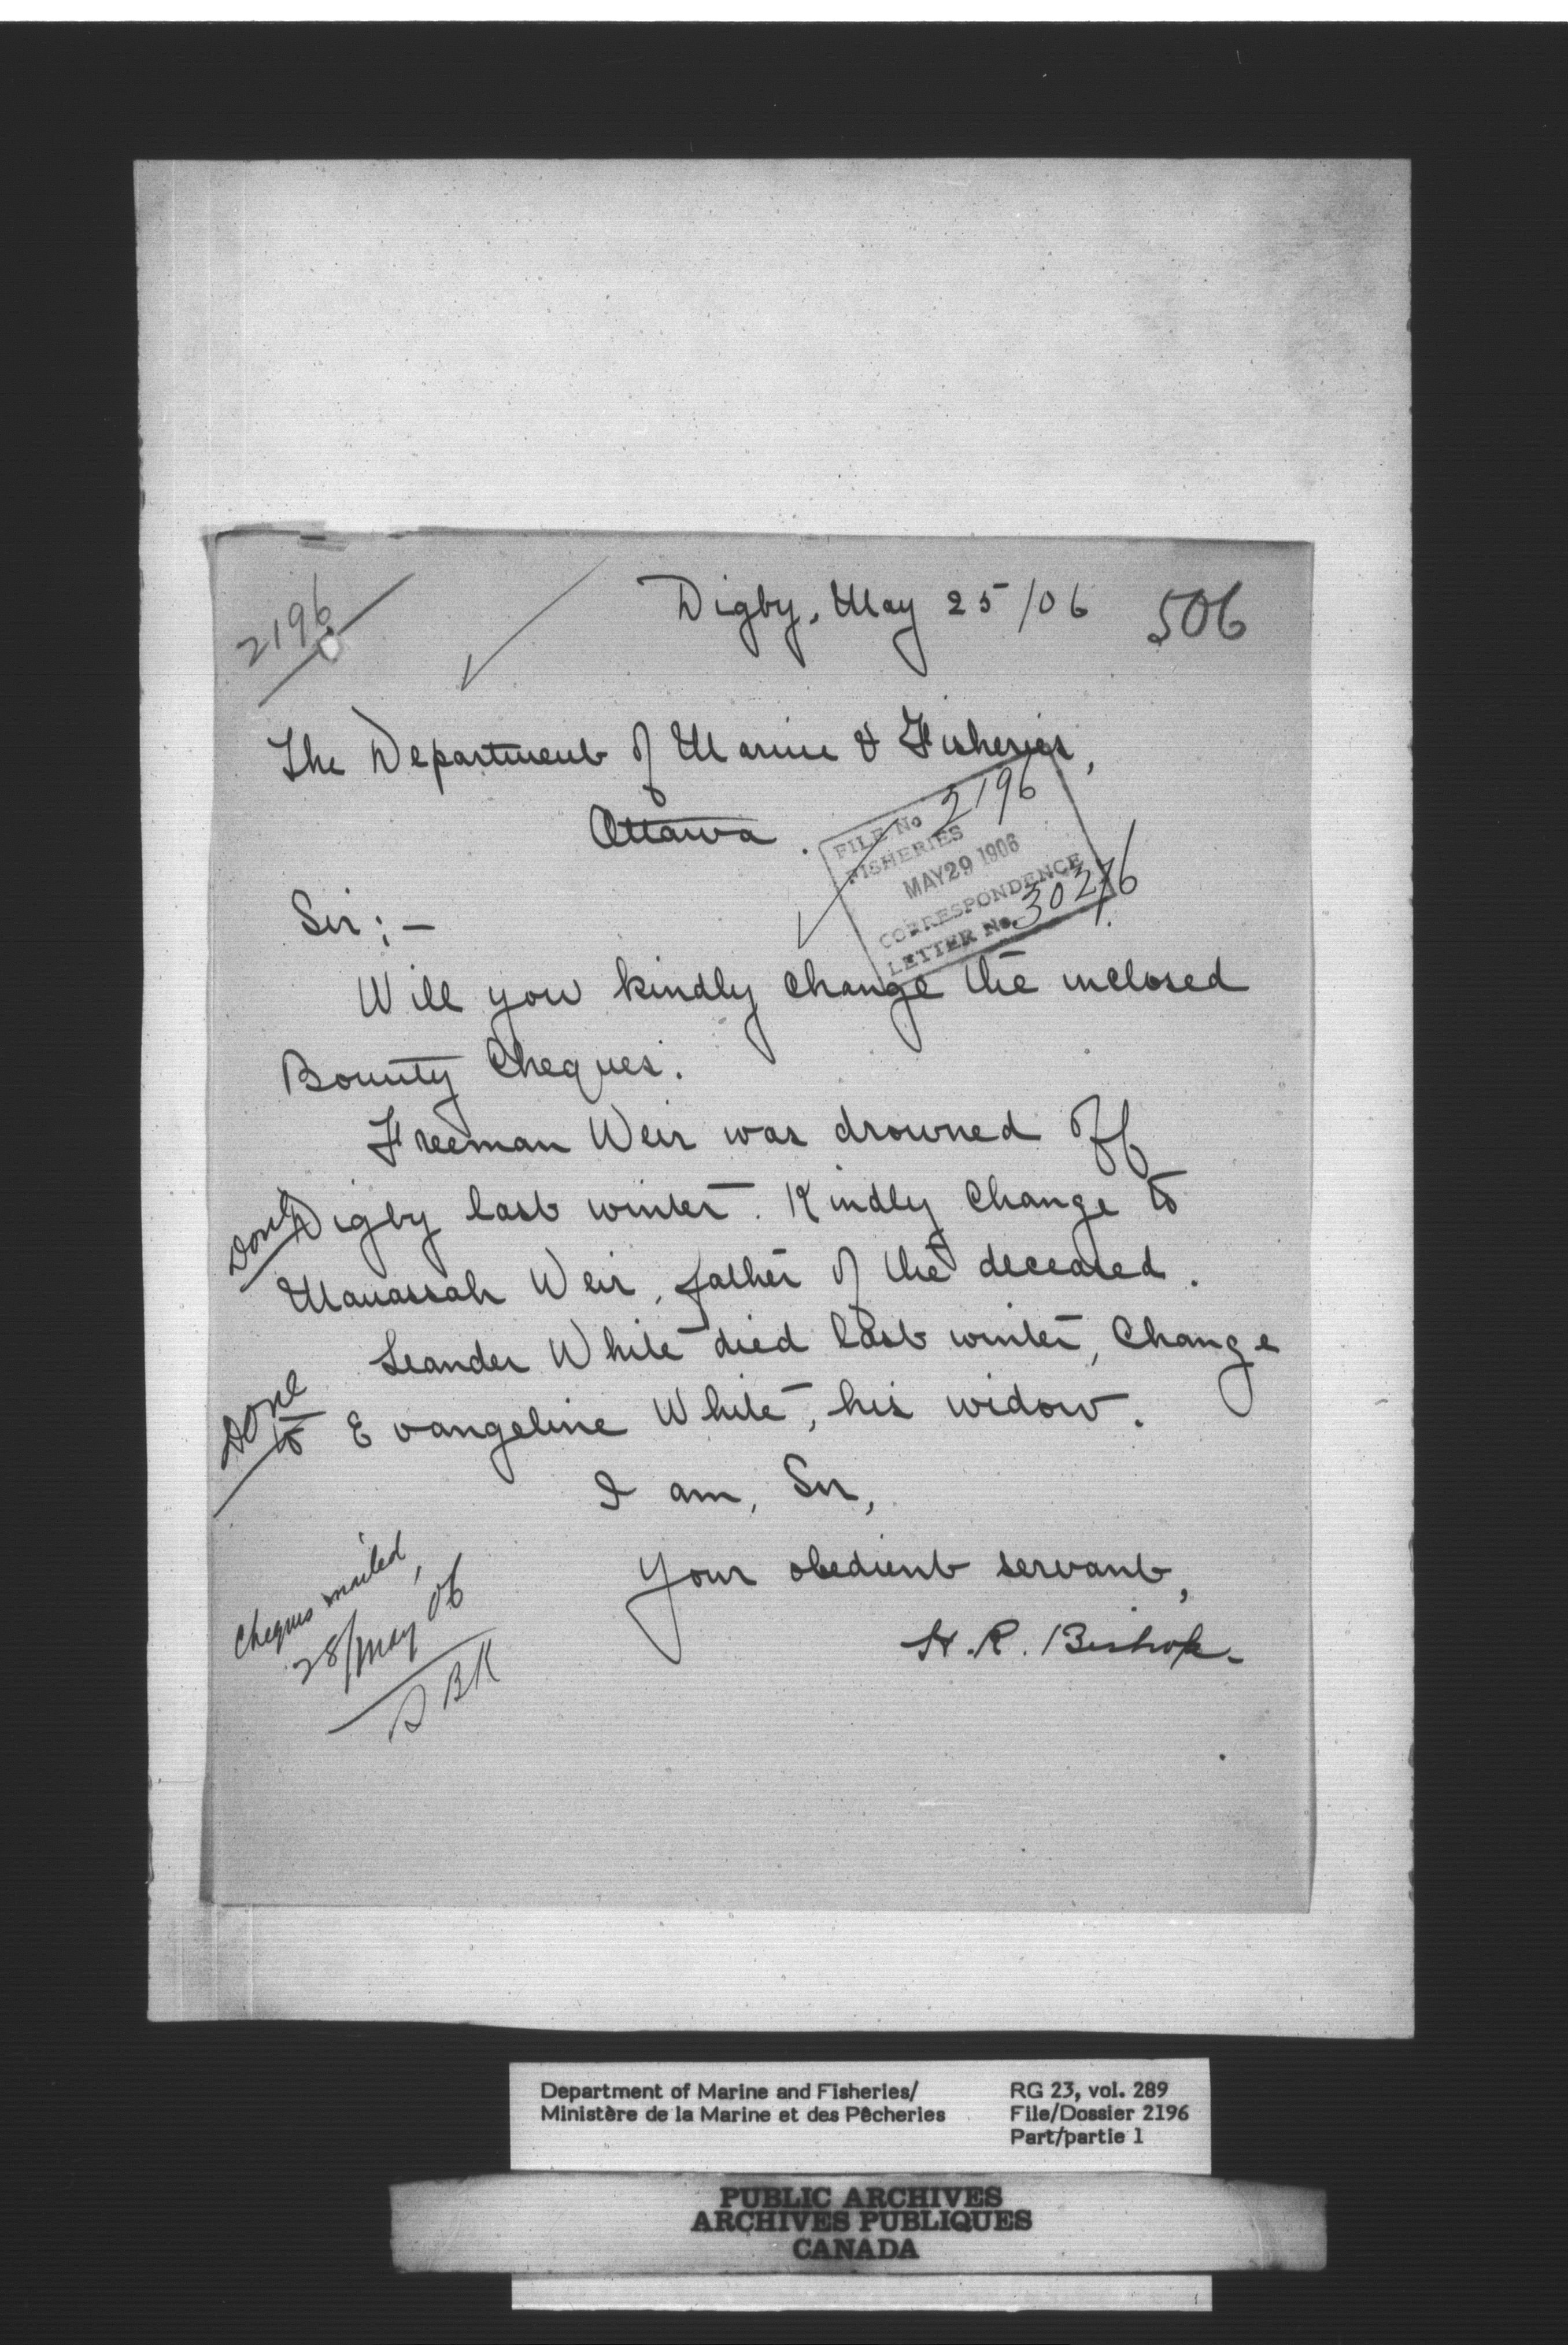 2196
Digby, May 25/06
506
The Department of Marine & Fisheries,
Ottawa.
FILE No 2196
FISHERIES
MAY 29 1906
CORRESPONDENCE
LETTER No. 30276
Sir:-
Will you kindly change the inclosed
Bounty Cheques.
Freeman Weir was drowned off
Done
Digby last winter. Kindly change to
Manassah Weir, father of the deceased.
Leander White died last winter, Change
Done
to Evangeline White, his widow.
I am, Sir,
Your obedient servant,
H. R. Bishop.
Cheques mailed,
28/May 06
Department of Marine and Fisheries/
Ministère de la Marine et des Pêcheries
RG 23, vol. 289
File/Dossier 2196
Part/partie 1
PUBLIC ARCHIVES
ARCHIVES PUBLIQUES
CANADA